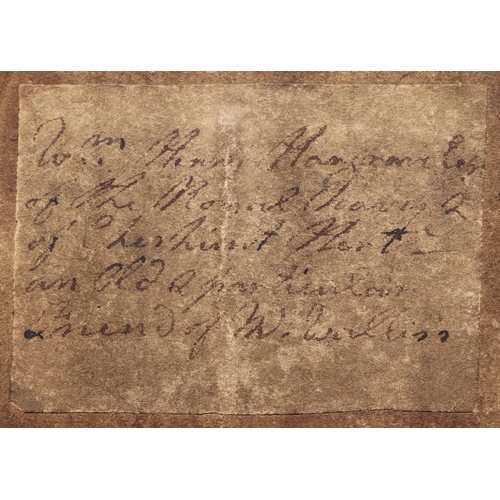 Wm Henry Hargrave Esq
of the Royal Navy &
of Cheshunt Herts
an Old & particular
Friend of W. Williss